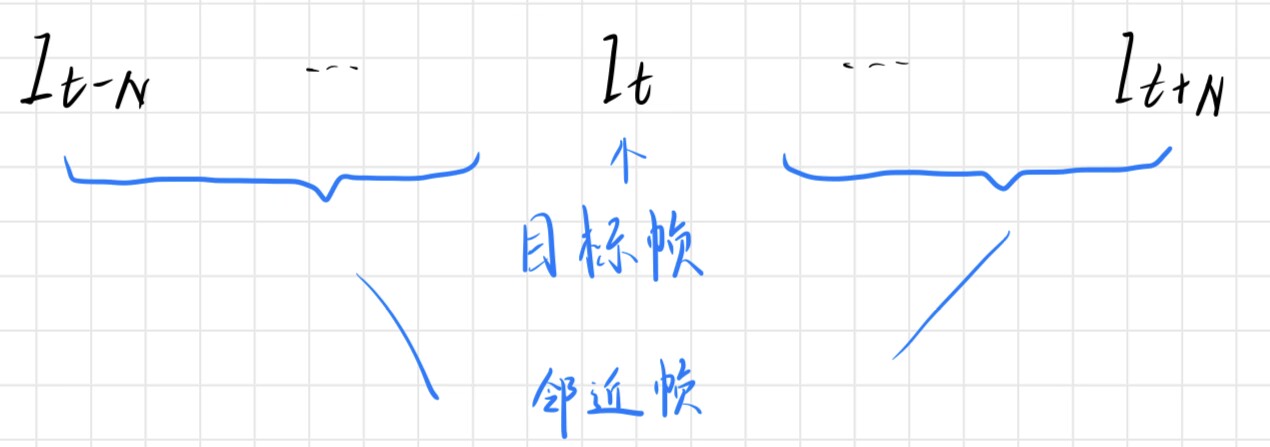 I_{t-N} --- I_t --- I_{t+N}
目标帧
邻近帧